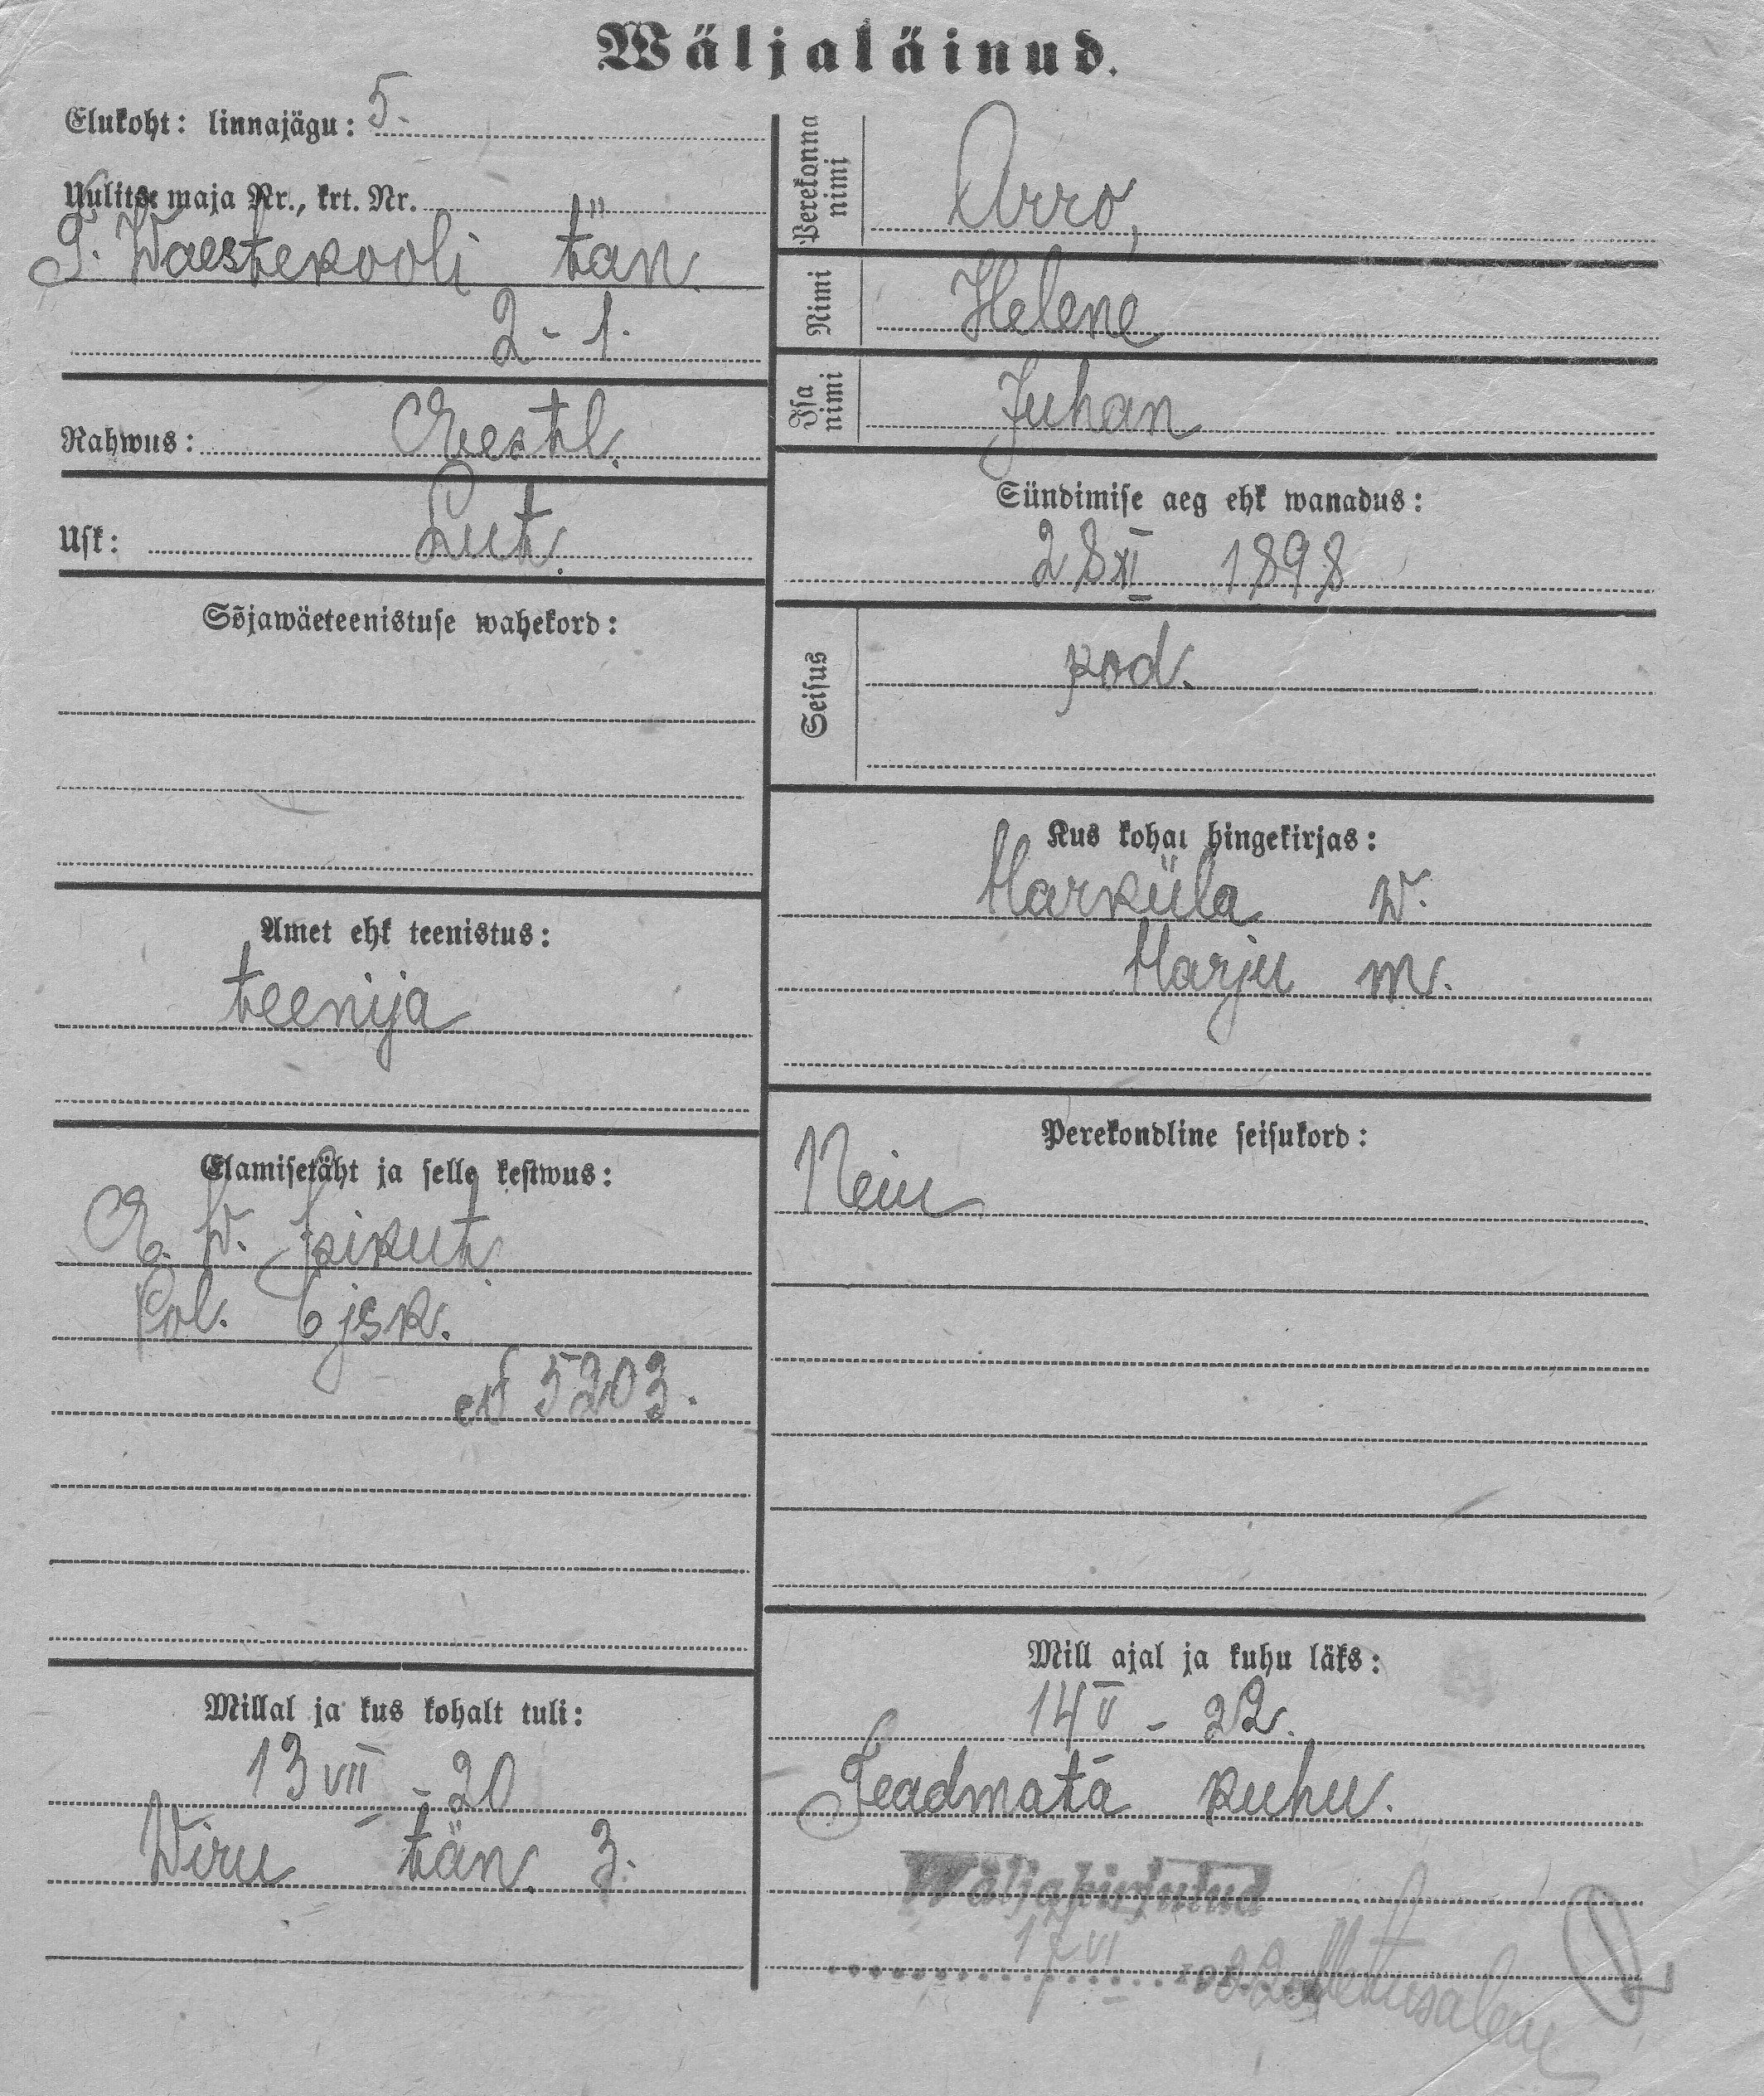 Wäljaläinud.
Elukoht: linnajägu: 5.
Uulitse maja Nr., krt. Nr.
S. Waestekooli tän.
2 - 1.
Rahwus: Eestl.
Usk: Lut.
Sõjawäeteenistuse wahekord:
Amet ehk teenistus:
teenija
Elamisetäht ja selle kestwus:
E. W. Isikut.
Pol. 6 jsk.
№ 5203.
Millal ja kus kohalt tuli:
13 VII - 20
Wiru tän. 3.
Perekonna nimi
Arro,
Nimi
Helene
Isa nimi
Juhan
Sündimise aeg ehk wanadus:
28 XI 1898
Seisus
kod.
Kus kohal hingekirjas:
Harküla w.
Harju m.
Perekondline seisukord:
Neiu
Mill ajal ja kuhu läks:
14 V - 22.
Teadmata kuhu.
Wäljakirjutud
17 VI